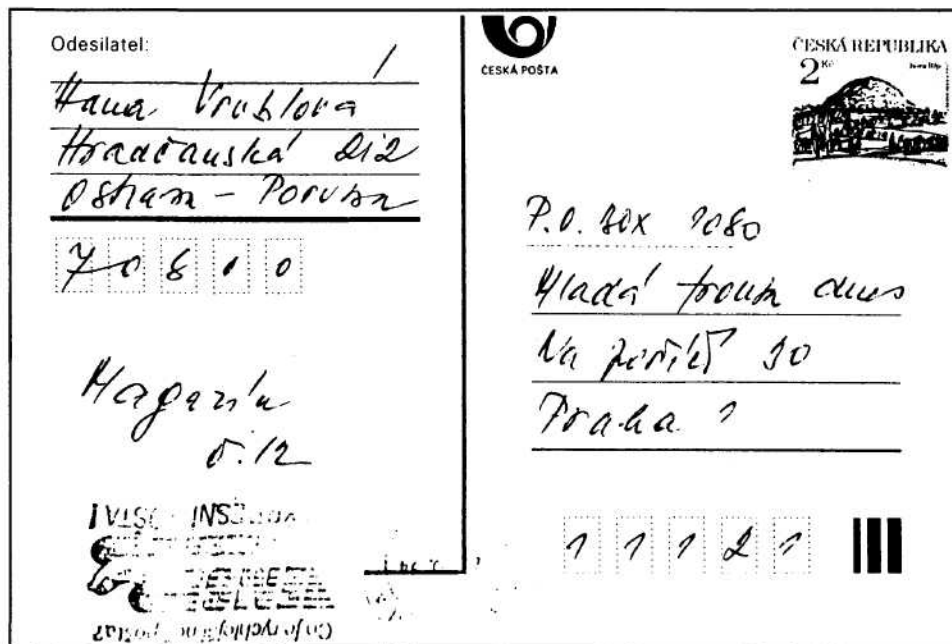 Odesilatel:
Hana Vrublová
Hradčanská 212
Ostrava - Poruba
70800
Magazín
č. 12
ČESKÁ POŠTA
ČESKÁ REPUBLIKA
2 Kč
P.O. BOX 1080
Mladá fronta dnes
Na poříčí 30
Praha 1
11121
Co je rychlejší než pošta?